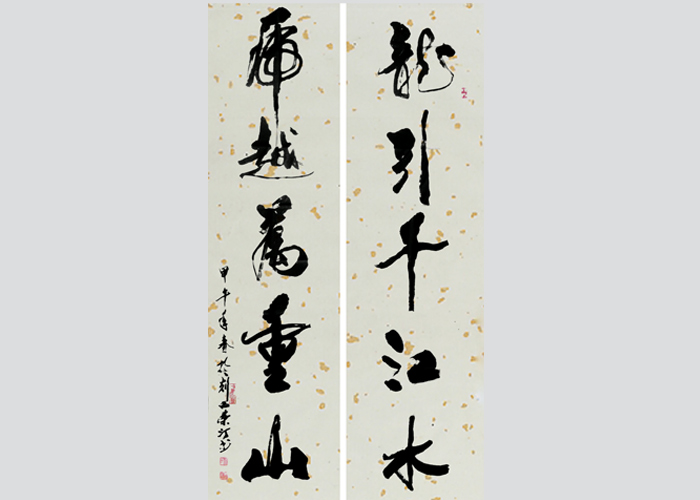 龍引千江水
虎越萬重山
甲午年春